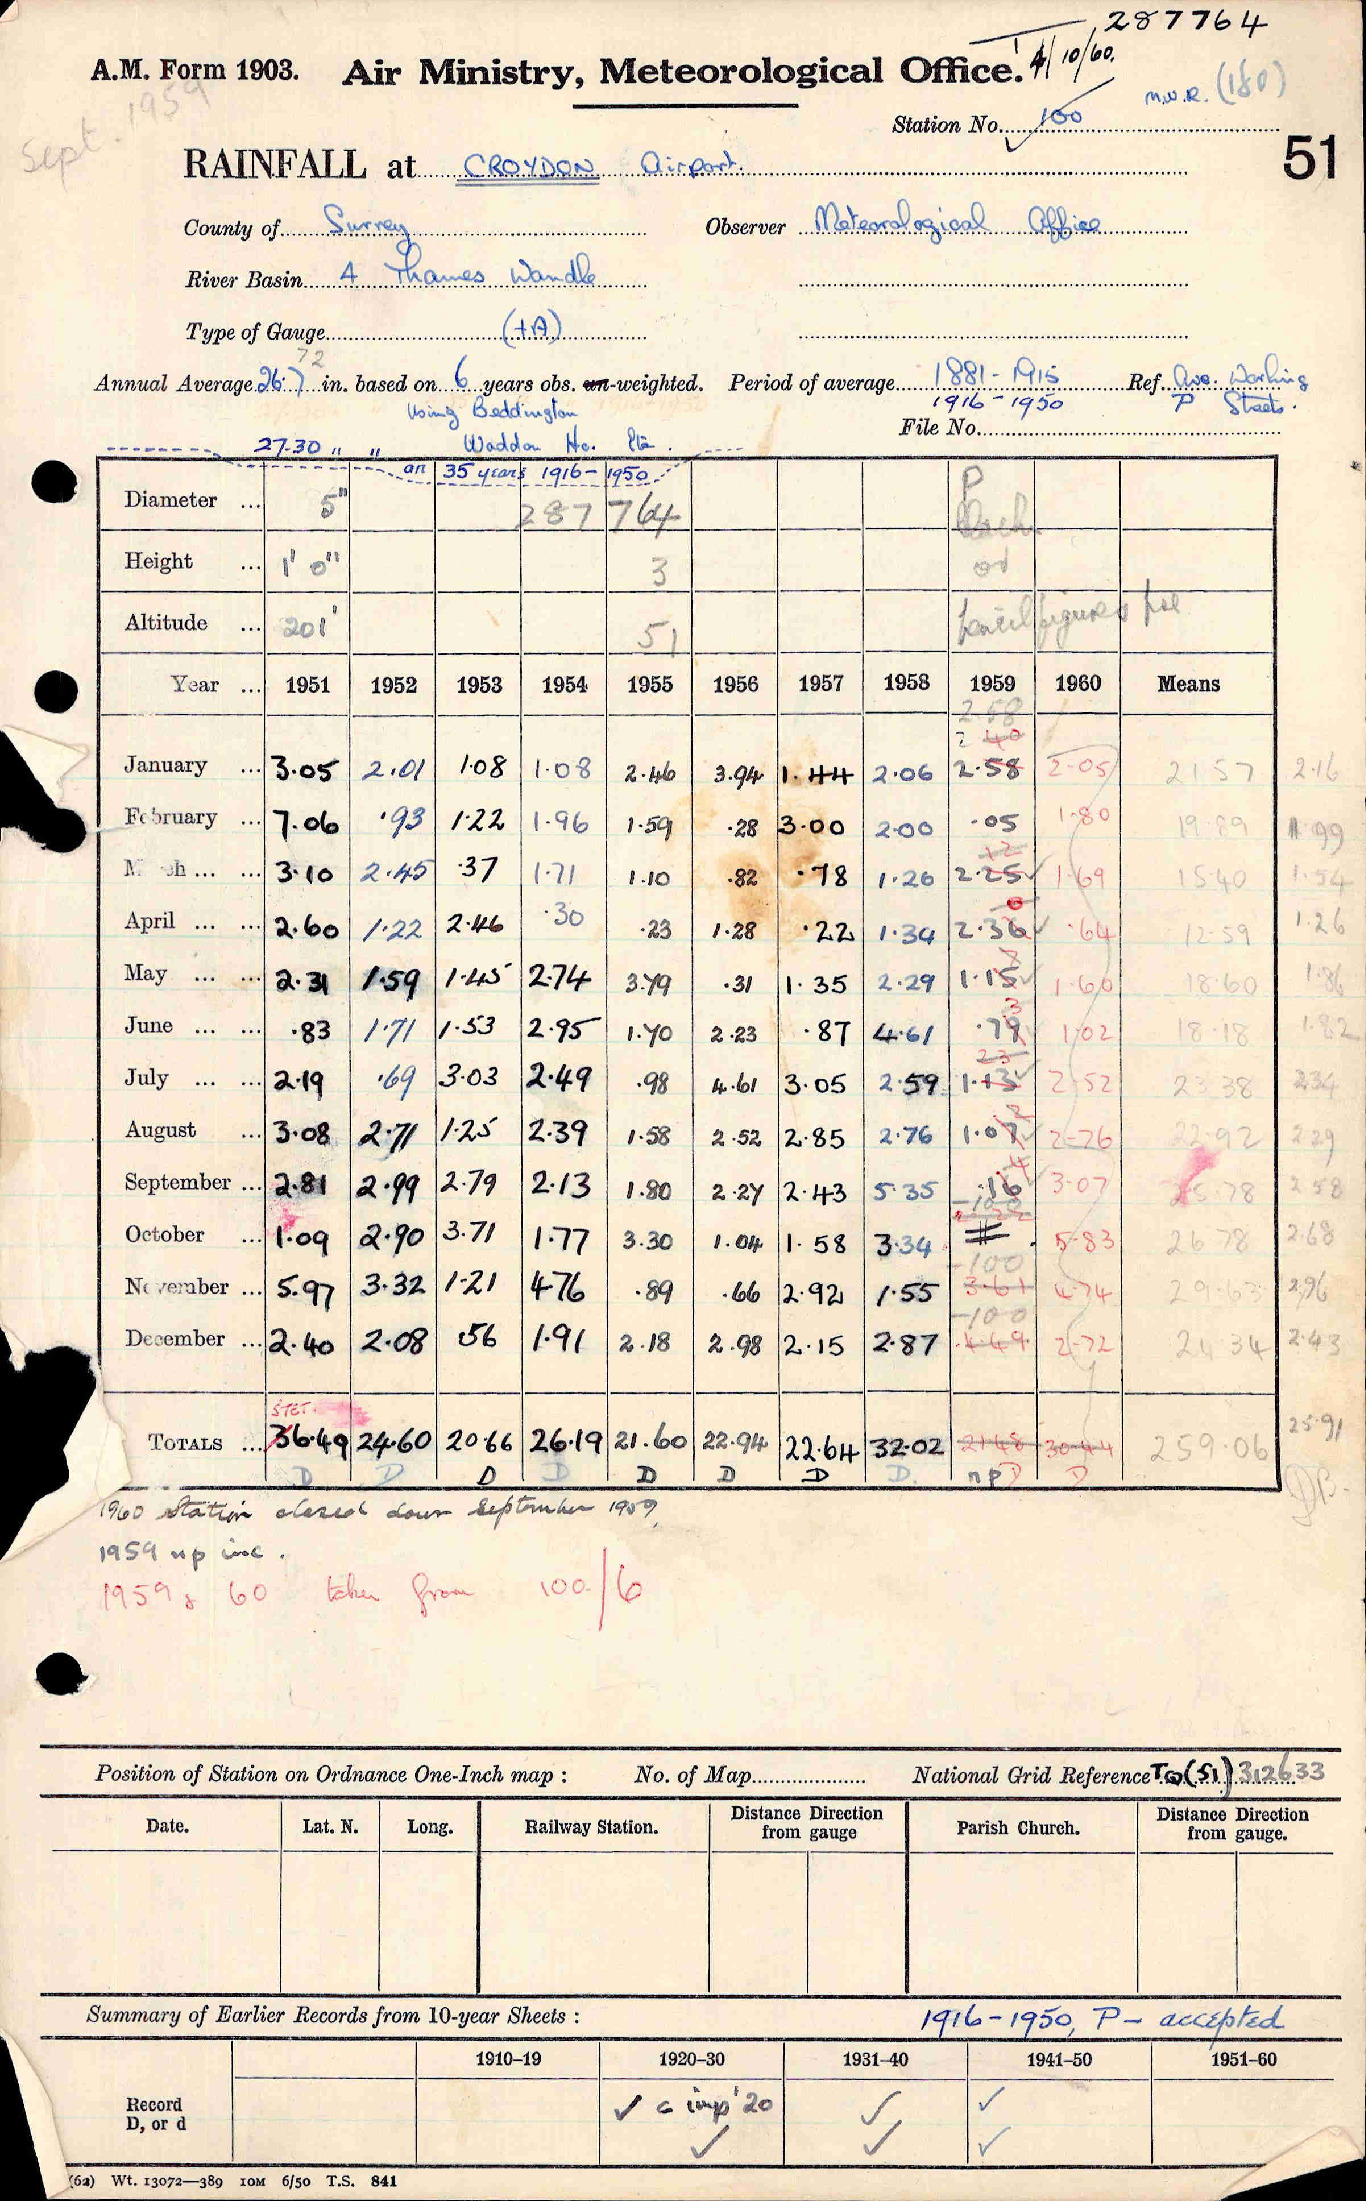 287764
A.M. Form 1903. Air Ministry, Meteorological Office. 4/10/60.
Sept. 1959
M.W.R. (180)
Station No. 100
51
RAINFALL at CROYDON Airport.
County of Surrey Observer Meteorological Office
River Basin 4 Thames Wandle
Type of Gauge (+A)
72
Annual Average 26.7 in. based on 6 years obs. un-weighted. Period of average 1881-1915 Ref. Ave. Working
1916-1950 P Sheets.
Using Beddington
File No.
27.30 " " Waddon Ho. Etc.
on 35 years 1916-1950
Diameter ... 5" 287 764 P
Height ... 1' 0" 3
Altitude ... 201' 51 pencil figures
Year ... 1951 1952 1953 1954 1955 1956 1957 1958 1959 1960 Means
2.58
2.40
January ... 3.05 2.01 1.08 1.08 2.46 3.94 1.44 2.06 2.58 2.05 21.57 2.16
February ... 7.06 .93 1.22 1.96 1.59 .28 3.00 2.00 .05 1.80 19.89 1.99
12
March ... 3.10 2.45 .37 1.71 1.10 .82 .78 1.26 2.25 1.69 15.40 1.54
0
April ... 2.60 1.22 2.46 .30 .23 1.28 .22 1.34 2.36 .64 12.59 1.26
8
May ... 2.31 1.59 1.45 2.74 3.79 .31 1.35 2.29 1.15 1.60 18.60 1.86
3
June ... .83 1.71 1.53 2.95 1.70 2.23 .87 4.61 .79 1.02 18.18 1.82
23
July ... 2.19 .69 3.03 2.49 .98 4.61 3.05 2.59 1.13 2.52 23.38 2.34
August ... 3.08 2.71 1.25 2.39 1.58 2.52 2.85 2.76 1.07 2.76 22.92 2.29
4
September ... 2.81 2.99 2.79 2.13 1.80 2.27 2.43 5.35 .16 3.07 25.78 2.58
-100
October ... 1.09 2.90 3.71 1.77 3.30 1.04 1.58 3.34 # 5.83 26.78 2.68
-100
November ... 5.97 3.32 1.21 4.76 .89 .66 2.92 1.55 3.61 4.74 29.63 2.96
-100
December ... 2.40 2.08 .56 1.91 2.18 2.98 2.15 2.87 4.49 2.72 24.34 2.43
STET.
TOTALS ... 36.49 24.60 20.66 26.19 21.60 22.94 22.64 32.02 21.48 30.44 259.06 25.91
D D D D D D D D. np D D
1960 Station closed down September 1959,
1959 up inc.
1959 & 60 taken from 100/6
Position of Station on Ordnance One-Inch map : No. of Map National Grid Reference TQ(51) 312633
Date. Lat. N. Long. Railway Station. Distance Direction from gauge Parish Church. Distance Direction from gauge.
Summary of Earlier Records from 10-year Sheets : 1916-1950, P - accepted
1910–19 1920–30 1931–40 1941–50 1951–60
Record ✓ c imp '20 ✓ ✓
D, or d ✓ ✓ ✓
(62) Wt. 13072—389 10M 6/50 T.S. 841